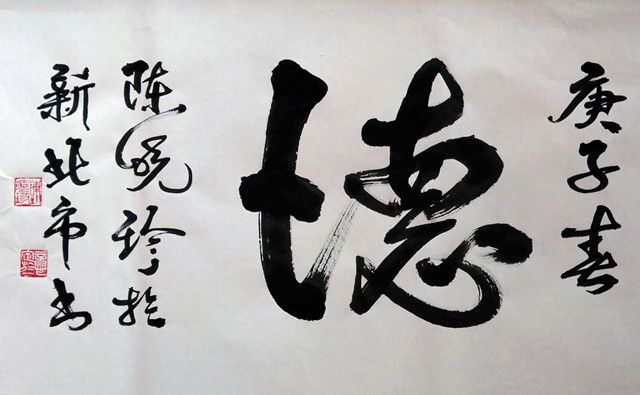 庚子春
德
陈晓玲於
新北市书